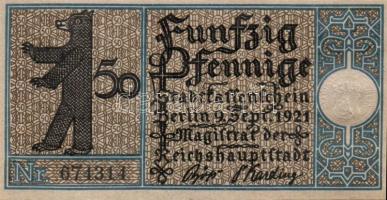 Funfzig
50 Pfennige
Stadtkassenschein
Berlin 9. Sept. 1921
Magistrat der
Reichshauptstadt
Nr. 671314